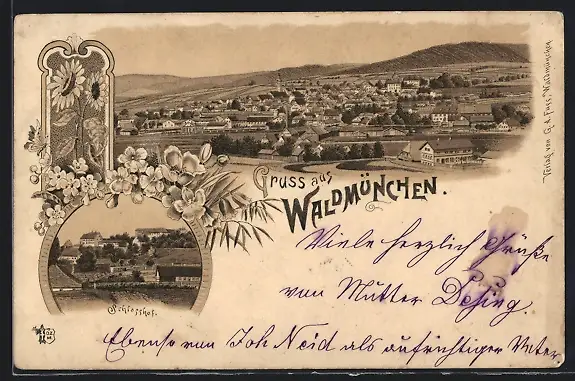 Gruss aus
WALDMÜNCHEN.
Schlosshof.
Verlag von G. d. Fuss, Waldmünchen
Viele herzlich Grüße
von Mutter Desing.
Ebenso von Joh Neid als aufrichtiger Vater